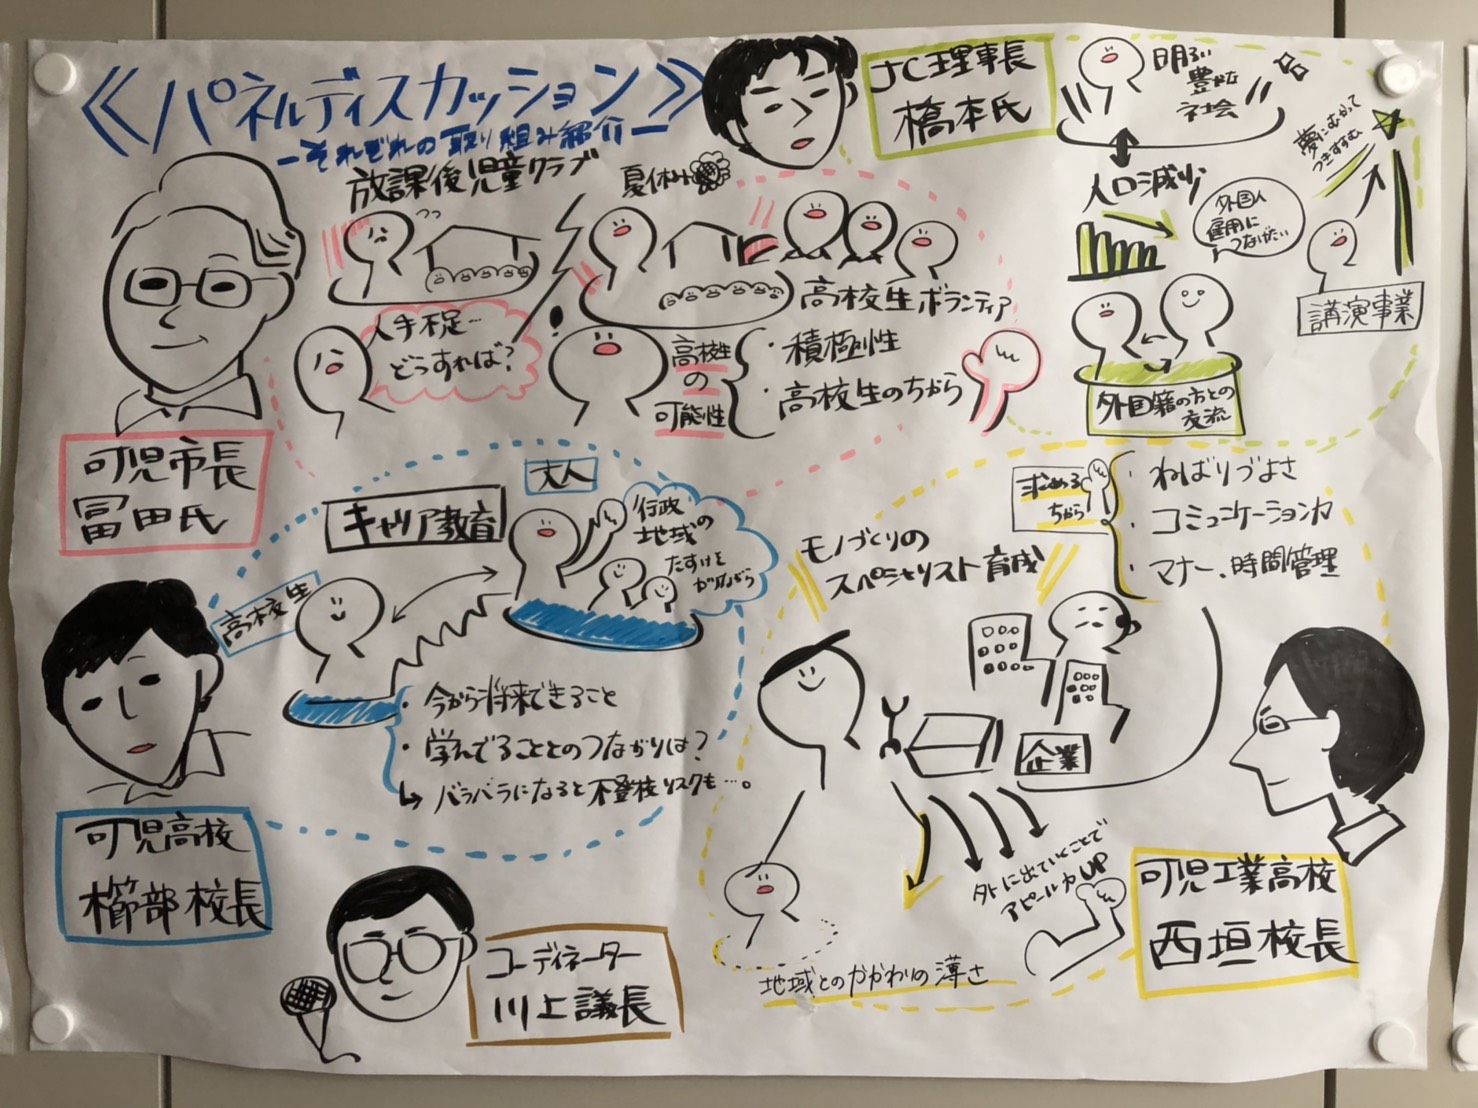 《パネルディスカッション》
ーそれぞれの取り組み紹介ー
放課後児童クラブ
人手不足…
どうすれば?
夏休み
高校生ボランティア
高校生
の
可能性
・積極性
・高校生のちから
可児市長
冨田氏
JC理事長
橋本氏
明るい
豊かな
社会
人口減少
外国人
雇用に
つなげたい
夢にむかって
つきすすむ
講演事業
外国籍の方との
交流
キャリア教育
大人
行政
地域の
たすけを
かりながら
高校生
・今から将来できること
・学んでることとのつながりは?
↳バラバラになると不登校リスクも…。
可児高校
櫛部校長
モノづくりの
スペシャリスト育成
求める
ちから
・ねばりづよさ
・コミュニケーション力
・マナー、時間管理
企業
外に出ていくことで
アピール力UP
地域とのかかわりの薄さ
可児工業高校
西垣校長
コーディネーター
川上議長